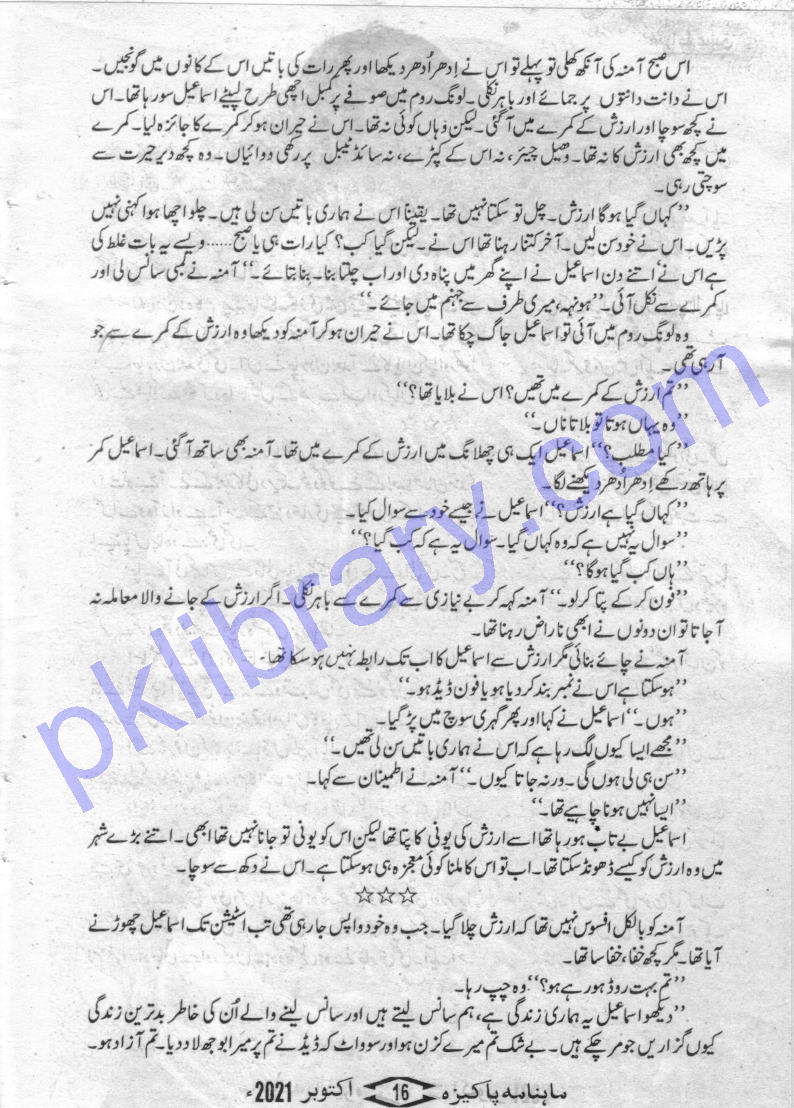 اس صبح آمنہ کی آنکھ کھلی تو پہلے تو اس نے اِدھر اُدھر دیکھا اور پھر رات کی باتیں اس کے کانوں میں گونجیں۔
اس نے دانت دانتوں پر جمائے اور باہر نکلی۔ لونگ روم میں صوفے پر کمبل اچھی طرح لپیٹے اسماعیل سو رہا تھا۔ اس
نے کچھ سوچا اور ارزش کے کمرے میں آ گئی۔ لیکن وہاں کوئی نہ تھا۔ اس نے حیران ہو کر کمرے کا جائزہ لیا۔ کمرے
میں کچھ بھی ارزش کا نہ تھا۔ وھیل چیئر، نہ اس کے کپڑے، نہ سائڈ ٹیبل پر رکھی دوائیاں۔ وہ کچھ دیر حیرت سے
سوچتی رہی۔
’’کہاں گیا ہو گا ارزش۔ چل تو سکتا نہیں تھا۔ یقیناً اس نے ہماری باتیں سن لی ہیں۔ چلو اچھا ہوا کہنی نہیں
پڑیں۔ اس نے خود سن لیں۔ آخر کتنا رہنا تھا اس نے۔ لیکن گیا کب؟ کیا رات ہی یا صبح...... ویسے یہ بات غلط کی
ہے اس نے‘ اتنے دن اسماعیل نے اپنے گھر میں پناہ دی اور اب چلتا بنا۔ بِنا بتائے۔‘‘ آمنہ نے لمبی سانس لی اور
کمرے سے نکل آئی۔ ’’ہونہہ، میری طرف سے جہنم میں جائے۔‘‘
وہ لونگ روم میں آئی تو اسماعیل جاگ چکا تھا۔ اس نے حیران ہو کر آمنہ کو دیکھا وہ ارزش کے کمرے سے جو
آ رہی تھی۔
’’تم ارزش کے کمرے میں تھیں؟ اس نے بلایا تھا؟‘‘
’’وہ یہاں ہوتا تو بلاتا ناں۔‘‘
’’کیا مطلب؟‘‘ اسماعیل ایک ہی چھلانگ میں ارزش کے کمرے میں تھا۔ آمنہ بھی ساتھ آ گئی۔ اسماعیل کمر
پر ہاتھ رکھے اِدھر اُدھر دیکھنے لگا۔
’’کہاں گیا ہے ارزش؟‘‘ اسماعیل نے جیسے خود سے سوال کیا۔
’’سوال یہ نہیں ہے کہ وہ کہاں گیا۔ سوال یہ ہے کہ کب گیا؟‘‘
’’ہاں کب گیا ہو گا؟‘‘
’’فون کر کے پتا کر لو۔‘‘ آمنہ کہہ کر بے نیازی سے کمرے سے باہر نکلی۔ اگر ارزش کے جانے والا معاملہ نہ
آ جاتا تو ان دونوں نے ابھی ناراض رہنا تھا۔
آمنہ نے چائے بنائی مگر ارزش سے اسماعیل کا اب تک رابطہ نہیں ہو سکا تھا۔
’’ہو سکتا ہے اس نے نمبر بند کر دیا ہو یا فون ڈیڈ ہو۔‘‘
’’ہوں۔‘‘ اسماعیل نے کہا اور پھر گہری سوچ میں پڑ گیا۔
’’مجھے ایسا کیوں لگ رہا ہے کہ اس نے ہماری باتیں سن لی تھیں۔‘‘
’’سن ہی لی ہوں گی۔ ورنہ جاتا کیوں۔‘‘ آمنہ نے اطمینان سے کہا۔
’’ایسا نہیں ہونا چاہیے تھا۔‘‘
اسماعیل بے تاب ہو رہا تھا اسے ارزش کی یونی کا پتا تھا لیکن اس کو یونی تو جانا نہیں تھا ابھی۔ اتنے بڑے شہر
میں وہ ارزش کو کیسے ڈھونڈ سکتا تھا۔ اب تو اس کا ملنا کوئی معجزہ ہی ہو سکتا ہے۔ اس نے دکھ سے سوچا۔
☆☆☆
آمنہ کو بالکل افسوس نہیں تھا کہ ارزش چلا گیا۔ جب وہ خود واپس جا رہی تھی تب اسٹیشن تک اسماعیل چھوڑنے
آیا تھا۔ مگر کچھ خفا، خفا سا تھا۔
’’تم بہت روڈ ہو رہے ہو؟‘‘ وہ چپ رہا۔
’’دیکھو اسماعیل یہ ہماری زندگی ہے، ہم سانس لیتے ہیں اور سانس لینے والے اُن کی خاطر بدترین زندگی
کیوں گزاریں جو مر چکے ہیں۔ بے شک تم میرے کزن ہو اور سو واٹ کہ ڈیڈ نے تم پر میرا بوجھ لاد دیا۔ تم آزاد ہو۔
ماہنامہ پاکیزہ 16 اکتوبر 2021ء
pklibrary.com